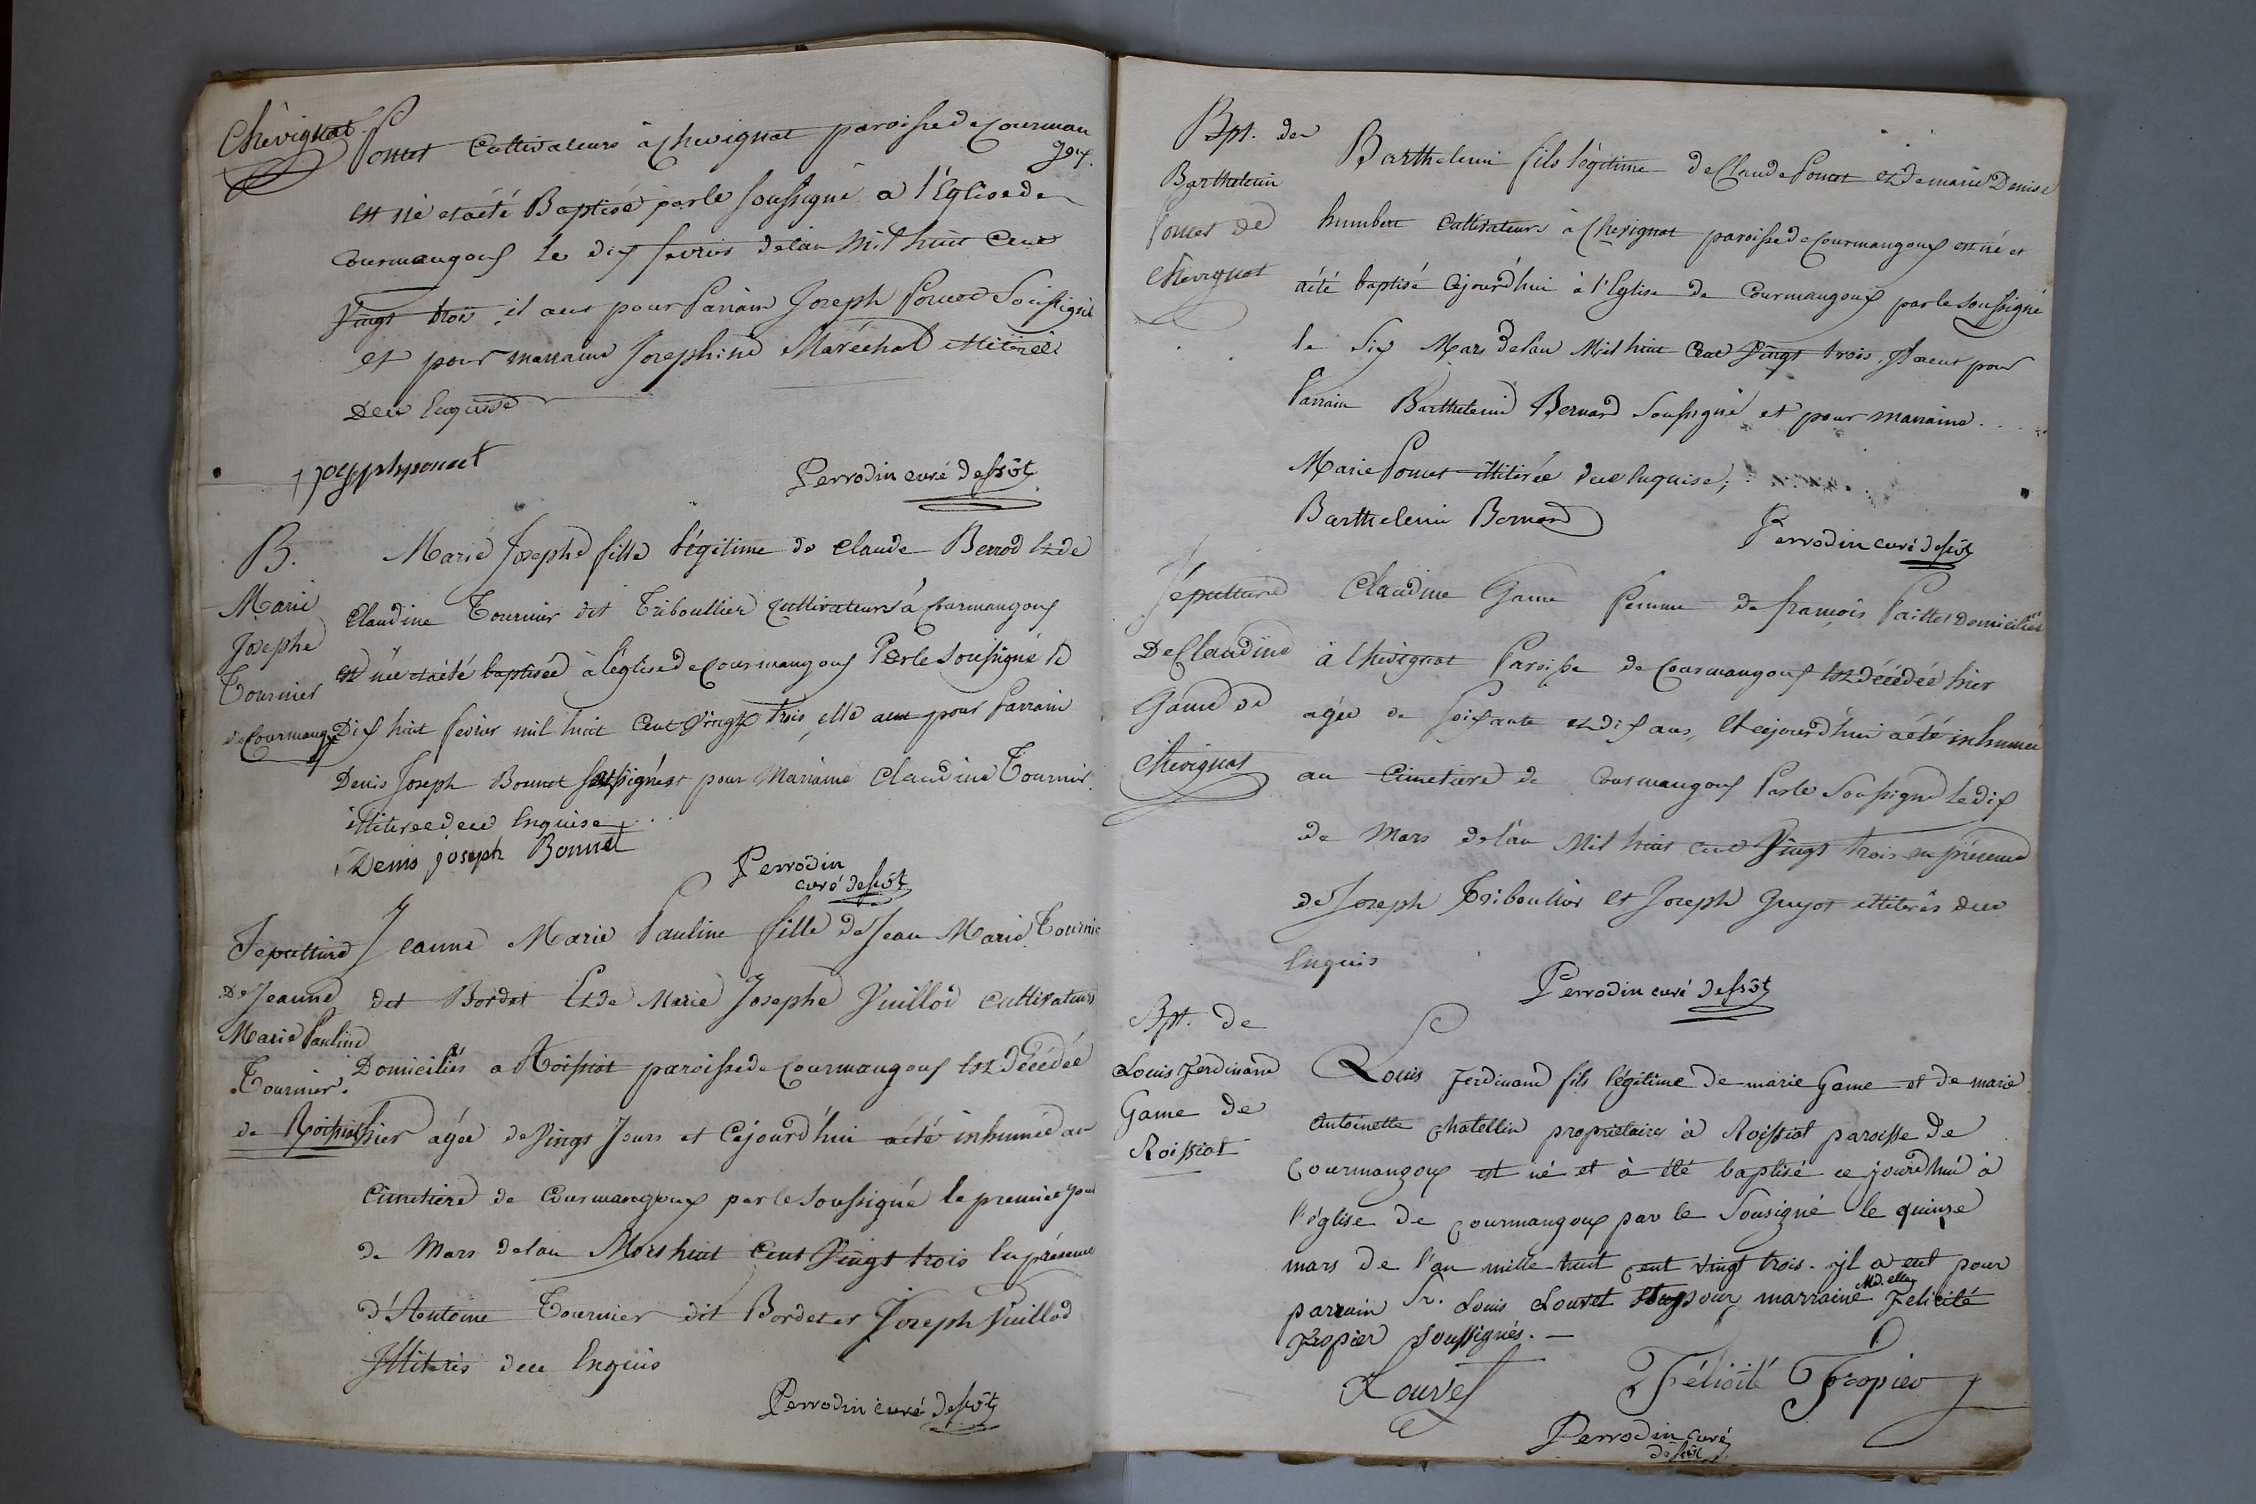 Chevignat
Poncet Cultivateurs à Chevignat paroisse de Courman
goux.
est né et a été Baptisé par le soussigné a l'Eglise de
Courmangoux le dix fevrier de l'an Mil huit Cent
Vingt trois, il a eut pour Parrain Joseph Poncet Soussigné
et pour marraine Josephine Maréchal illitérée
De ce Enquise
joseph poncet
Perrodin curé desst
B.
Marie
Josephe
Tournier
de Courmangx
Marie Josephe fille légitime de Claude Berrod et de
Claudine Tournier dit Triboullier cultivateurs à Courmangoux
est née et a été baptisée à l'église de Courmangoux Par le soussigné le
Dix huit fevrier mil huit Cent Vingt trois, elle a eut pour Parrain
Denis Joseph Bonnet soussigné et pour Marraine Claudine Tournier
illiterée de ce Enquise
Denis joseph Bonnet
Perrodin
curé desst
Sepulture
De Jeanne
Marie Pauline
Tournier
de Roissiat
Jeanne Marie Pauline fille de Jean Marie Tournier
dit Bordet Et de Marie Josephe Vuillod cultivateurs
Domiciliés a Roissiat paroisse de Courmangoux Est Décédée
hier agée de Vingt Jours et Cejourd'hui a été inhumée au
Cimetiere de Courmangoux par le soussigné le premier jour
de Mars de l'an huit Cent Vingt trois En présence
d'Antoine Tournier dit Bordet et Joseph Vuillod
Illiterés de ce Enquis
Perrodin curé desst
Bpt. de
Barthelemi
Poncet de
Chevignat
Barthelemi fils légitime de Claude Poncet et de marie Denise
humbert Cultivateurs à Chevignat paroisse de Courmangoux est né et
a été baptisé Cejourd'hui à l'Eglise de Courmangoux par le soussigné
le Six Mars de l'an Mil huit Cent Vingt trois. Il a eut pour
Parrain Barthelemi Bernard Soussigné et pour marraine
Marie Poncet illitérée de ce Enquise;
Barthelemi Bernard
Perrodin curé desst
Sépulture
De Claudine
Game de
Chevignat
Claudine Game femme de françois Paillet domiciliée
à Chevignat Paroisse de Courmangoux Est décédée hier
agée de Soixante et dix ans, Et cejourd'hui a été inhumée
au Cimetiere de Courmangoux Par le Soussigné le dix
de Mars de l'an Mil huit cent Vingt trois en présence
de Joseph Triboullier et Joseph Guyot illiterés de ce
Enquis
Perrodin curé desst
Bpt. de
Louis Ferdinand
Game de
Roissiat
Louis Ferdinand fils légitime de marie Game et de marie
Antoinette Chatellin proprietaires à Roissiat paroisse de
Courmangoux est né et à été baptisé ce jourd'hui à
l'église de Courmangoux par le Sousigné le quinze
mars de l'an mille huit cent vingt trois. il a eut pour
parrain Sr. Louis Louvet pour marraine Md.elle Felicité
Tropier soussignés.
Louvet
Félicité Tropier
Perrodin curé
desst